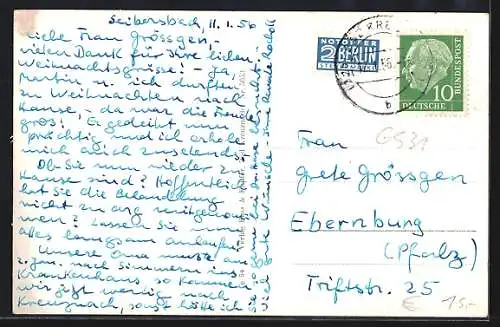 Seibersbach, 11.1.56
Liebe Frau Grössgen,-
vielen Dank für Ihre lieben
Weihnachtsgrüsse! Ja,
Martin u. ich durften
zu Weihnachten nach
Hause,- da war die Freude
gros! Er gedeiht nun
prächtig und ich erhole
mich auch zusehends.
Ob Sie nun wieder zu
Hause sind? Hoffentlich
hat Sie die Behandlung
nicht zu arg mitgenom-
men? Lassen Sie nur
alles langsam anlaufen.
Unsere Oma musste am
2. Jan. nach Simmern ins
Krankenhaus so kommen
wir jetzt wenig nach
Kreuznach, sonst hätte ich
NOTOPFER
2 BERLIN
STEUERMARKE
b
DEUTSCHE BUNDESPOST
10
G531
Frau
Grete Grössgen
Ebernburg
(Pfalz)
Triftstr. 25
€ 15,-